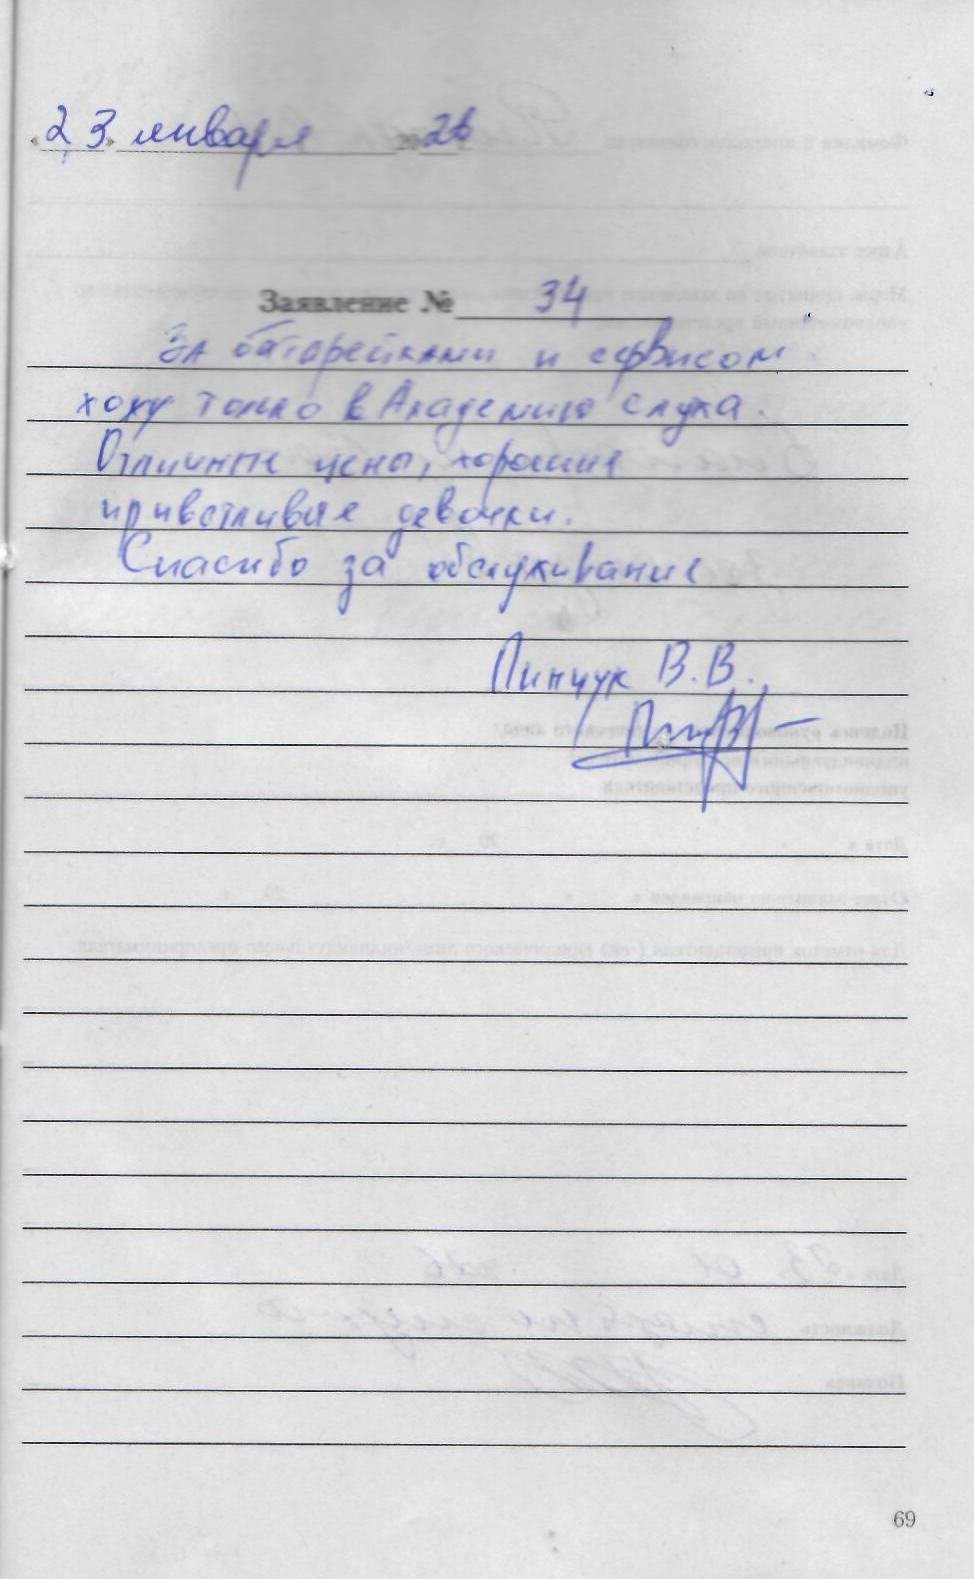 «23» января 2026
Заявление № 34
За батарейками и сервисом
хожу только в Академию слуха.
Отличные цены, хорошие
приветливые девочки.
Спасибо за обслуживание
Пинчук В.В.
69